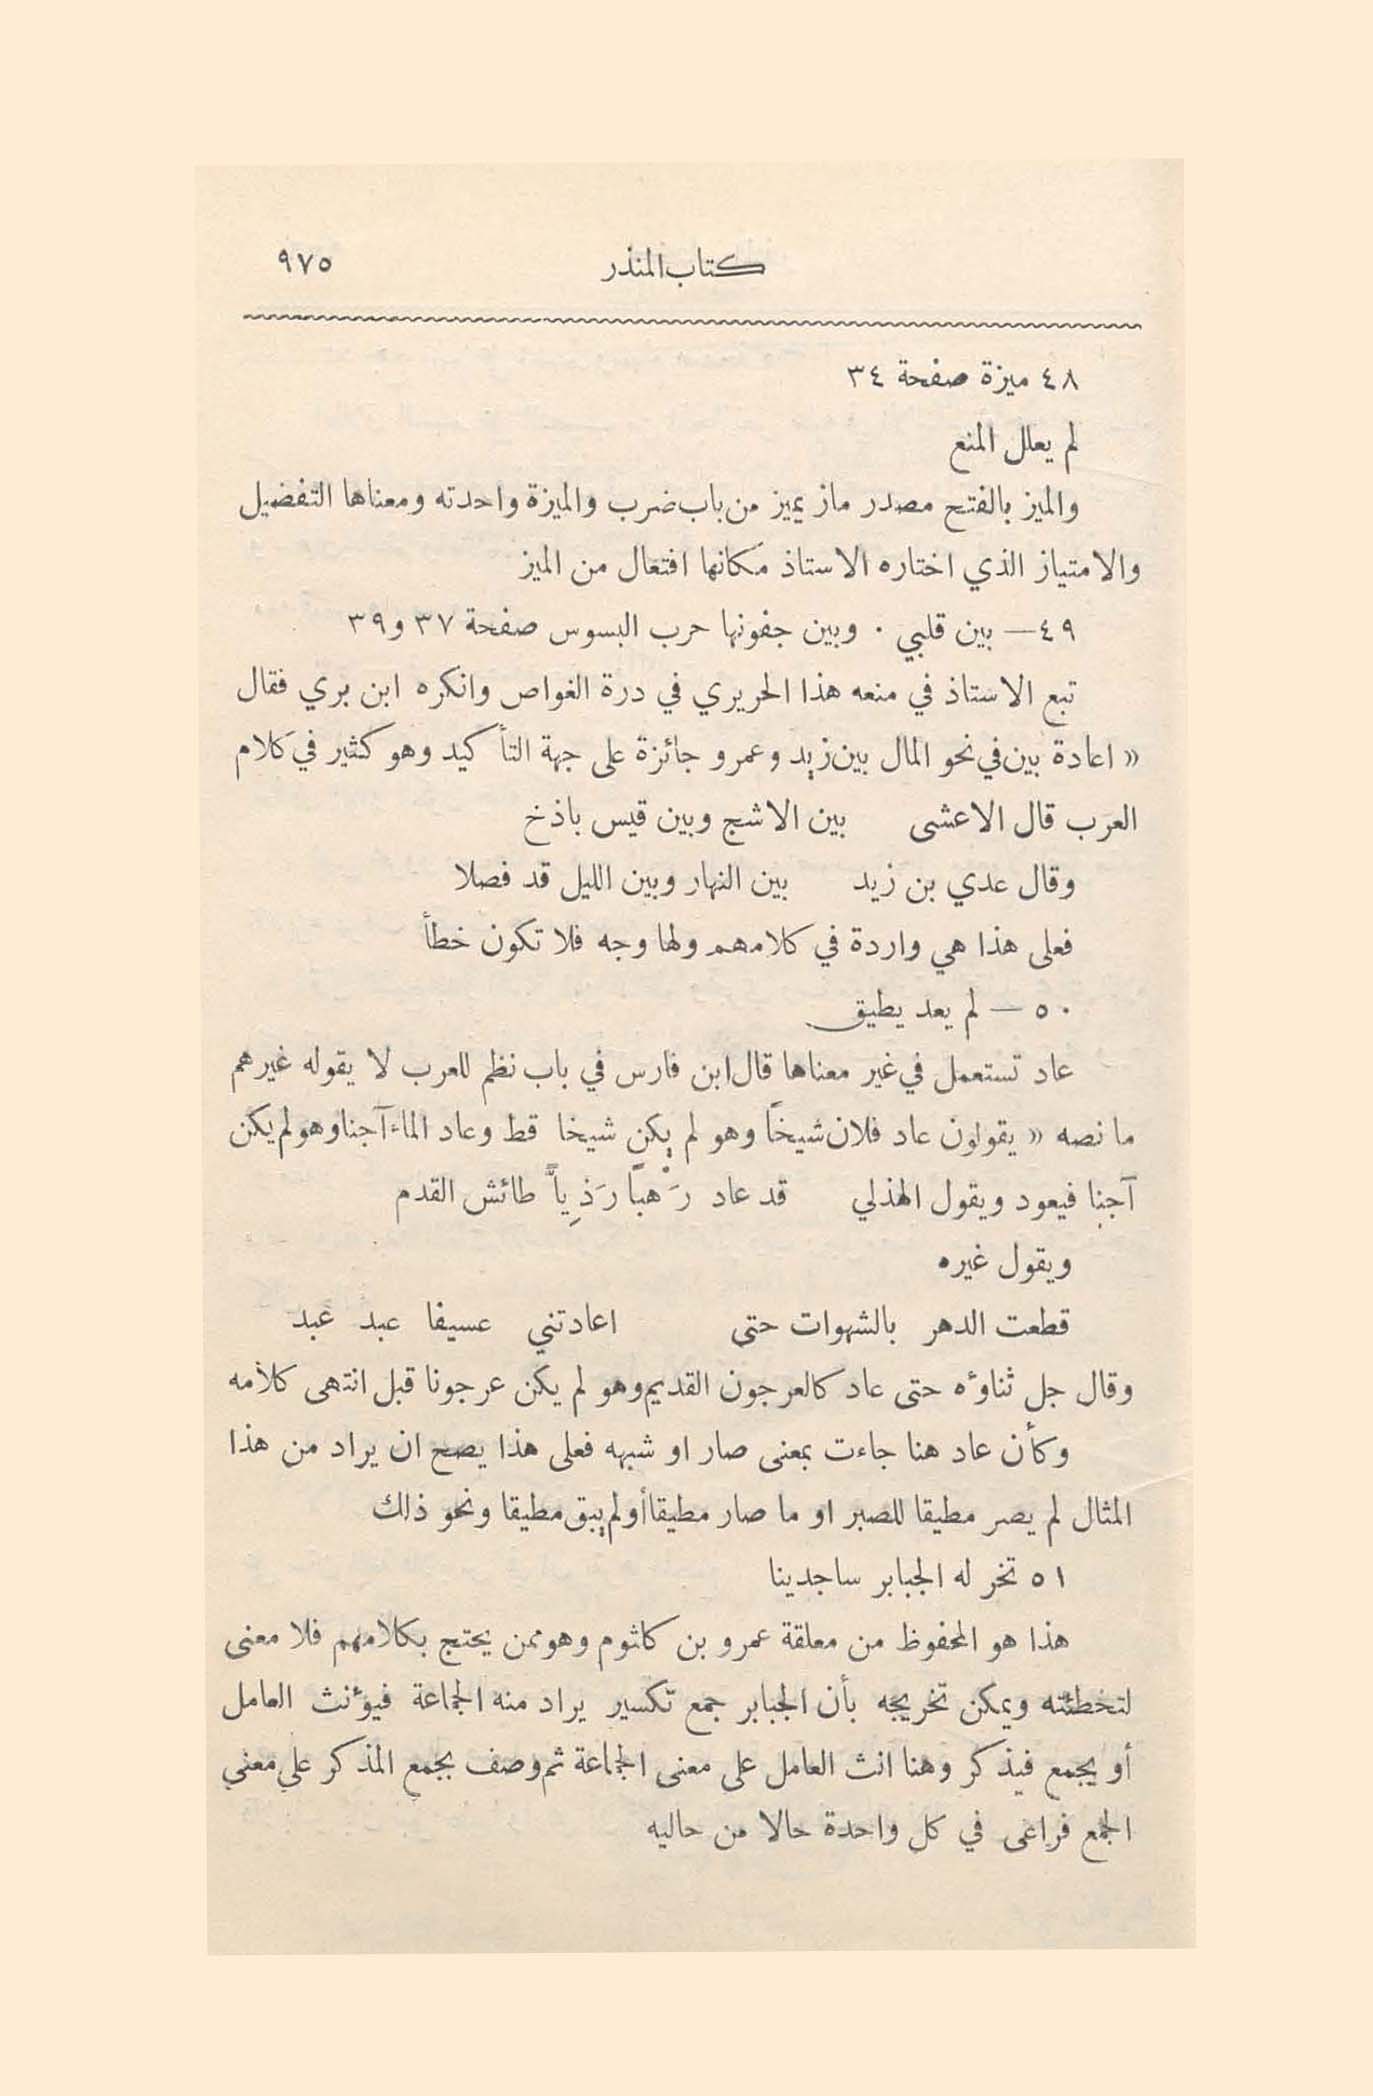 كتاب المنذر ٩٧٥
٤٨ ميزة صفحة ٣٤
لم يعلل المنع
والميز بالفتح مصدر ماز يميز من باب ضرب والميزة واحدته ومعناها التفضيل
والامتياز الذي اختاره الاستاذ مكانها افتعال من الميز
٤٩ — بين قلبي . وبين جفونها حرب البسوس صفحة ٣٧ و٣٩
تبع الاستاذ في منعه هذا الحريري في درة الغواص وانكره ابن بري فقال
« اعادة بين في نحو المال بين زيد وعمرو جائزة على جهة التأكيد وهو كثير في كلام
العرب قال الاعشى بين الاشج وبين قيس باذخ
وقال عدي بن زيد بين النهار وبين الليل قد فصلا
فعلى هذا هي واردة في كلامهم ولها وجه فلا تكون خطأ
٥٠ — لم يعد يطيق
عاد تستعمل في غير معناها قال ابن فارس في باب نظم للعرب لا يقوله غيرهم
ما نصه « يقولون عاد فلان شيخاً وهو لم يكن شيخا قط وعاد الماء آجنا وهو لم يكن
آجنا فيعود ويقول الهذلي قد عاد رَهْباً رَذِياًّ طائش القدم
ويقول غيره
قطعت الدهر بالشهوات حتى اعادتني عسيفا عبد عبد
وقال جل ثناؤه حتى عاد كالعرجون القديم وهو لم يكن عرجونا قبل انتهى كلامه
وكأن عاد هنا جاءت بمعنى صار او شبهه فعلى هذا يصح ان يراد من هذا
المثال لم يصر مطيقا للصبر او ما صار مطيقا أو لم يبق مطيقا ونحو ذلك
٥١ تخر له الجبابر ساجدينا
هذا هو المحفوظ من معلقة عمرو بن كلثوم وهو ممن يحتج بكلامهم فلا معنى
لتخطئته ويمكن تخريجه بأن الجبابر جمع تكسير يراد منه الجماعة فيؤنث العامل
أو يجمع فيذكر وهنا انث العامل على معنى الجماعة ثم وصف بجمع المذكر على معنى
الجمع فراعى في كل واحدة حالا من حاليه